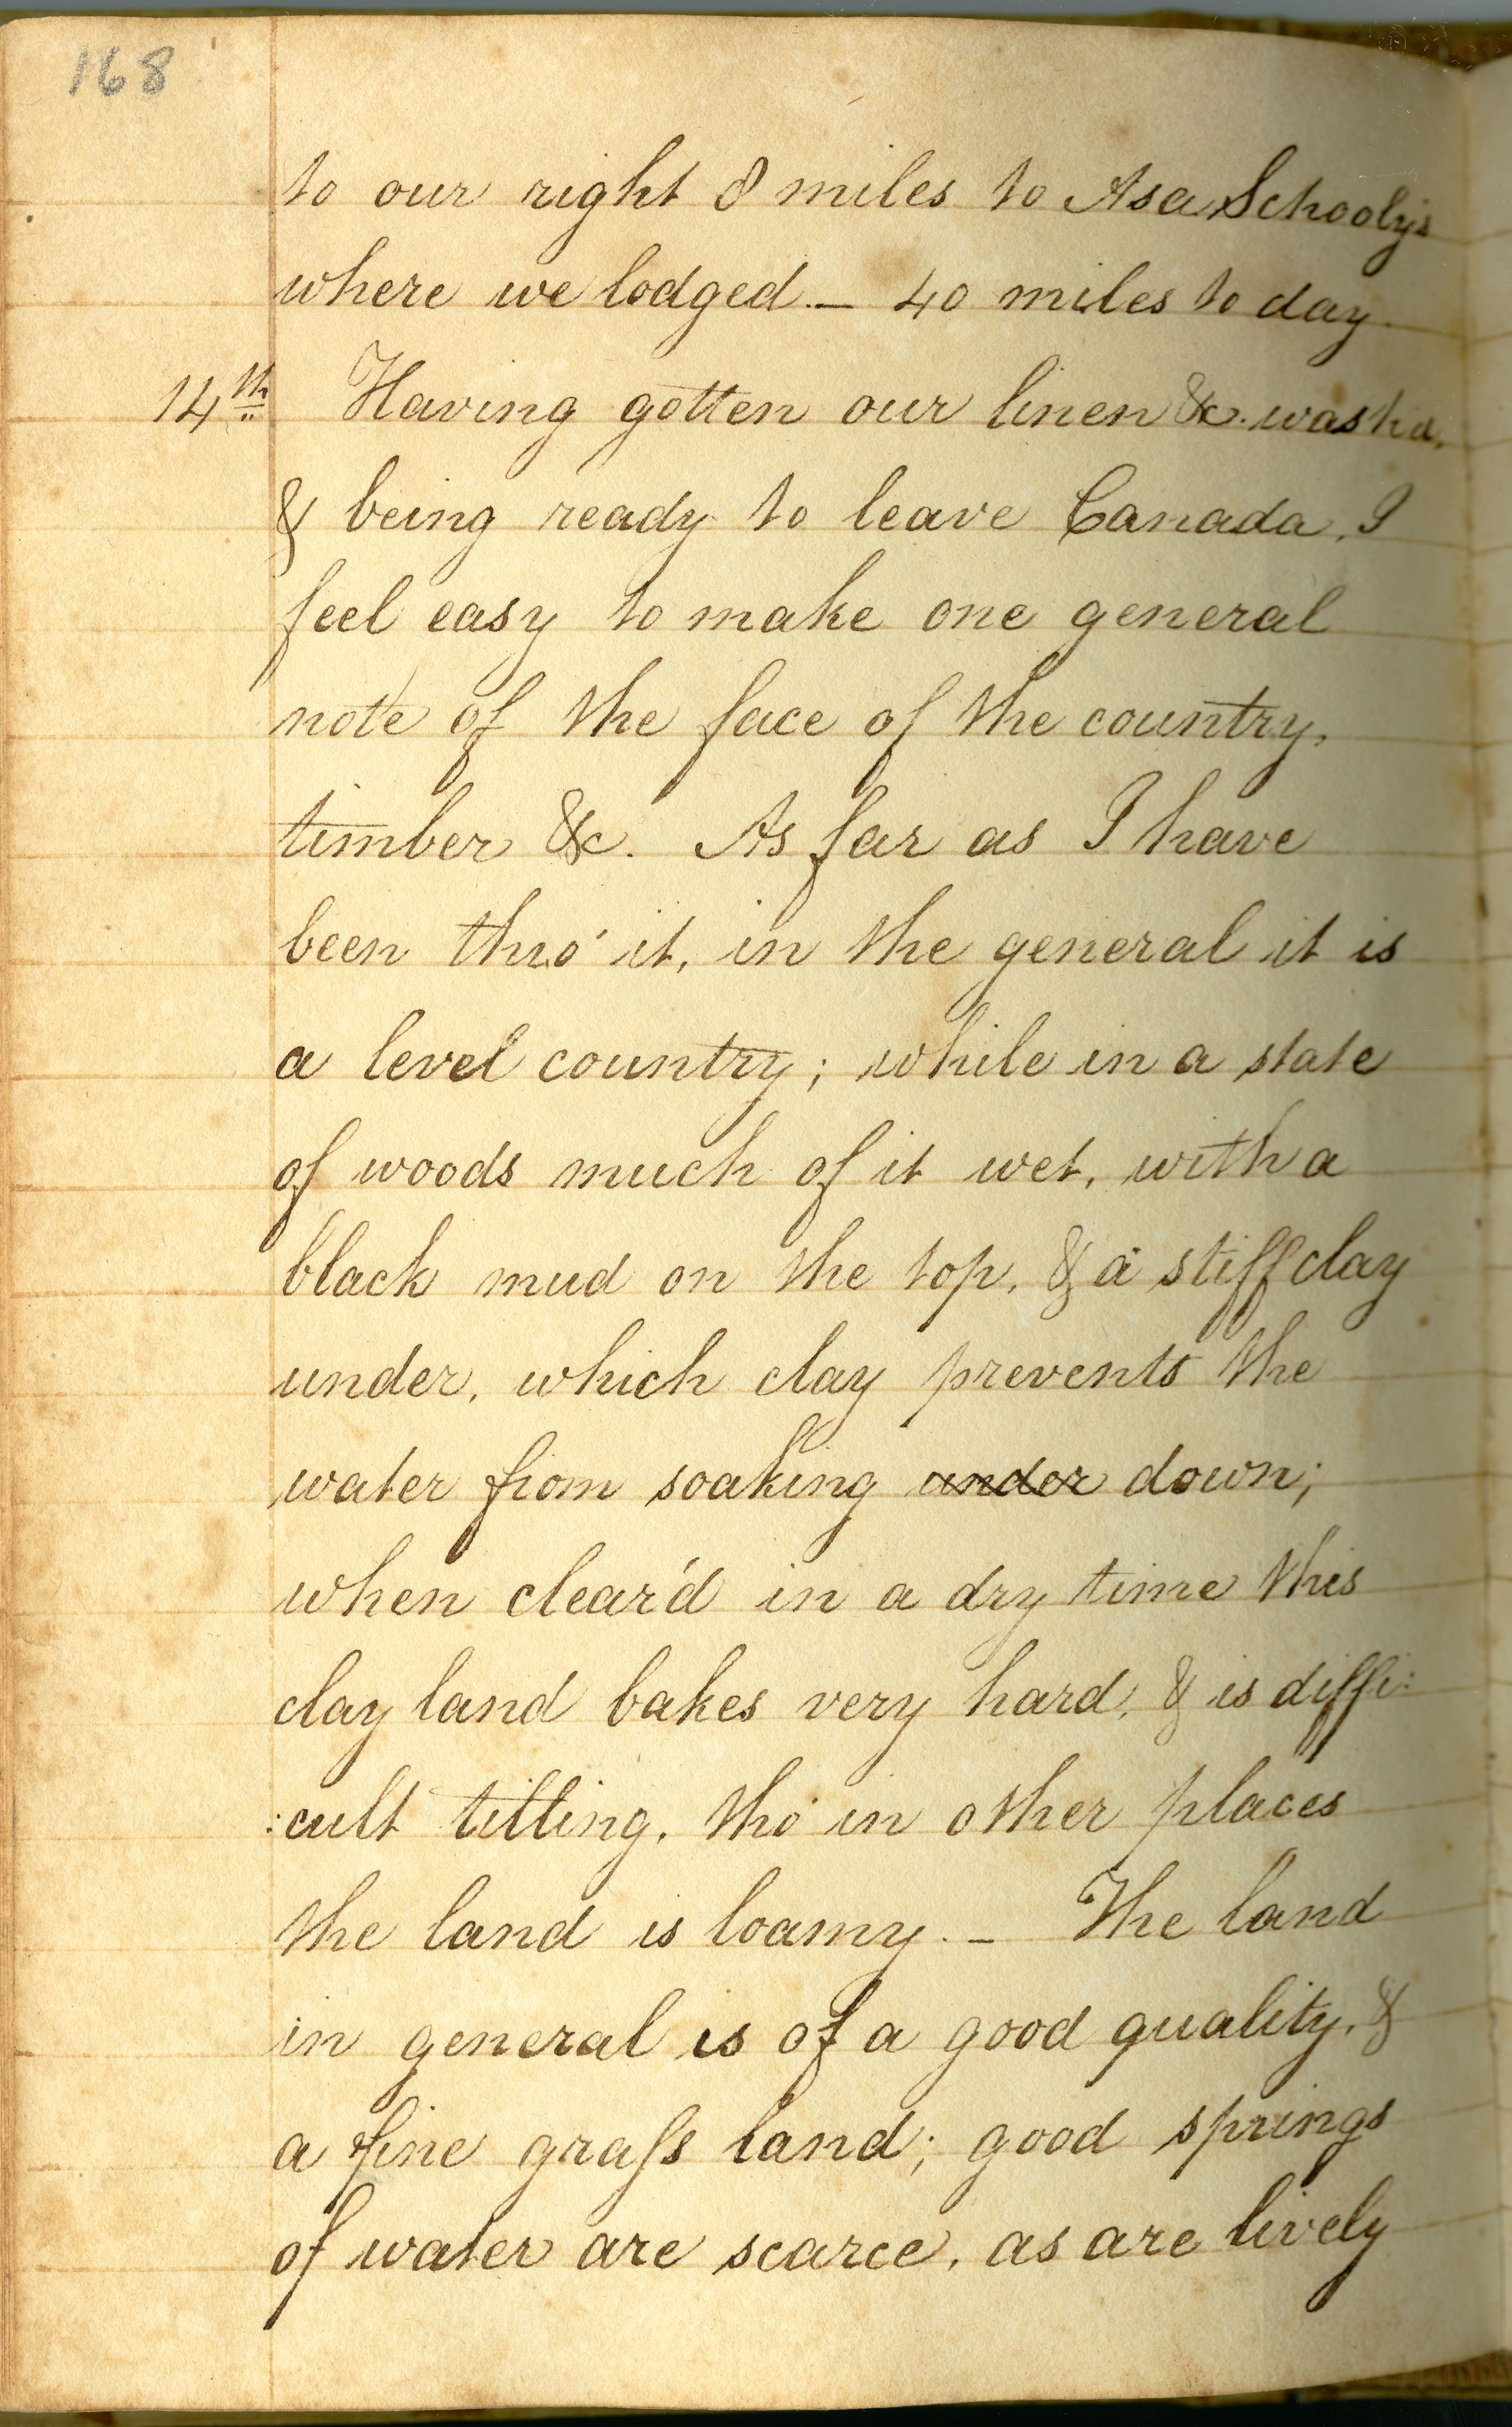 168
to our right 8 miles to Asa Schooly's
where we lodged. — 40 miles to day.
14th Having gotten our linen &c. wash'd,
& being ready to leave Canada, I
feel easy to make one general
note of the face of the country,
timber &c. As far as I have
been thro' it, in the general it is
a level country; while in a state
of woods much of it wet, with a
black mud on the top, & a stiff clay
under, which clay prevents the
water from soaking under down;
when clear'd in a dry time this
clay land bakes very hard, & is diffi:
:cult tilling, tho' in other places
the land is loamy. — The land
in general is of a good quality, &
a fine graſs land; good springs
of water are scarce, as are lively